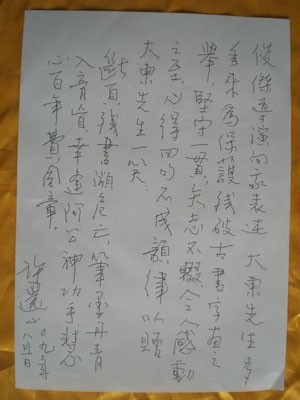 俊傑導演向我表述 大東先生多
年來為保護殘破古書字画之
舉,堅守一貫,矢志不輟,令人感動
之至,心得四句不成韻律以贈
大東先生一笑:
斷頁殘書瀕危亡,筆墨丹青
入膏肓,幸逢阿公神功手,慧
心百年費周章。
許還山 二〇〇九年
八月 日